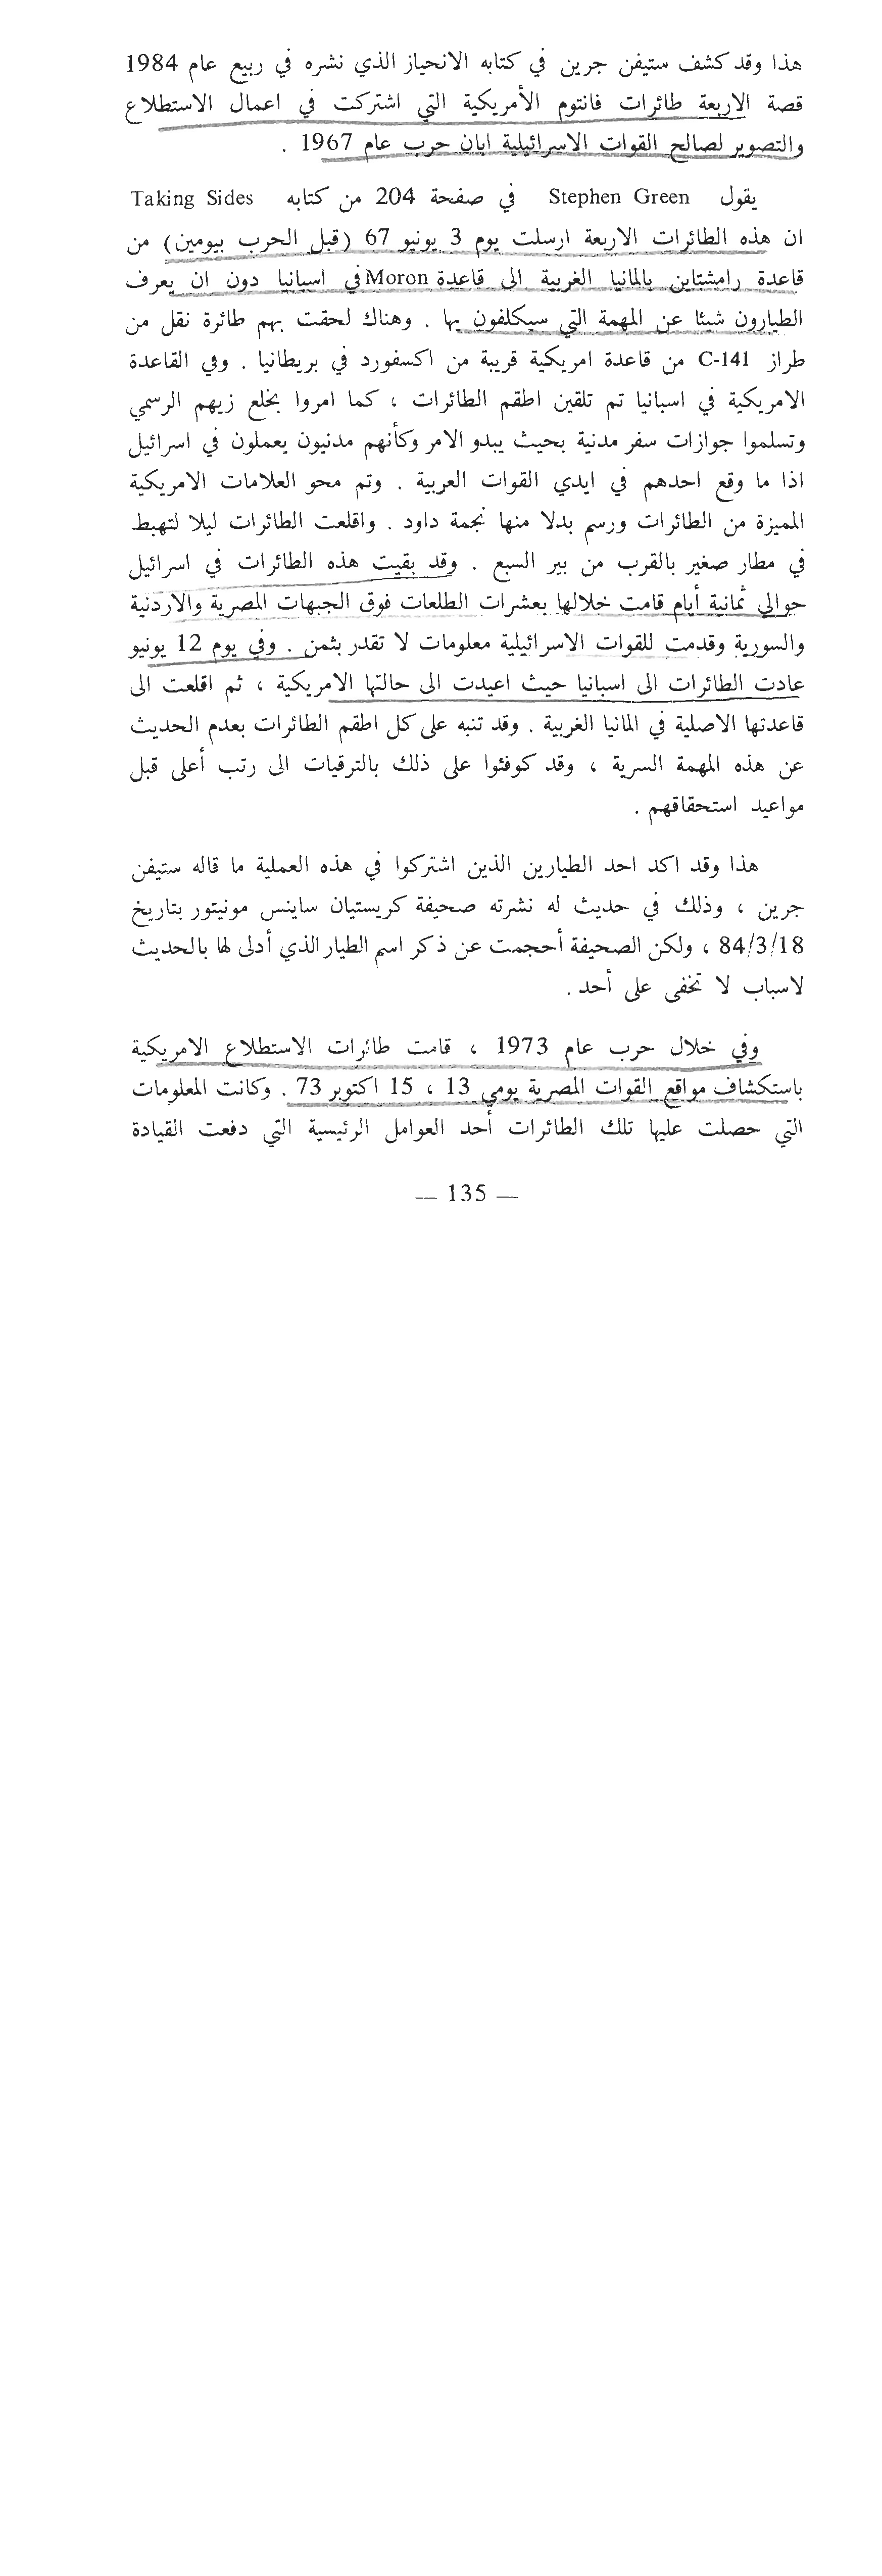 هذا وقد كشف ستيفن جرين في كتابه الانحياز الذي نشره في ربيع عام 1984
قصة الاربعة طائرات فانتوم الأمريكية التي اشتركت في اعمال الاستطلاع
والتصوير لصالح القوات الاسرائيلية ابان حرب عام 1967 .
يقول Stephen Green في صفحة 204 من كتابه Taking Sides
ان هذه الطائرات الاربعة ارسلت يوم 3 يونيو 67 (قبل الحرب بيومين) من
قاعدة رامشتاين بالمانيا الغربية الى قاعدة Moron في اسبانيا دون ان يعرف
الطيارون شيئا عن المهمة التي سيكلفون بها . وهناك لحقت بهم طائرة نقل من
طراز C-141 من قاعدة امريكية قريبة من اكسفورد في بريطانيا . وفي القاعدة
الامريكية في اسبانيا تم تلقين اطقم الطائرات ، كما امروا بخلع زيهم الرسمي
وتسلموا جوازات سفر مدنية بحيث يبدو الامر وكأنهم مدنيون يعملون في اسرائيل
اذا ما وقع احدهم في ايدي القوات العربية . وتم محو العلامات الامريكية
المميزة من الطائرات ورسم بدلا منها نجمة داود . واقلعت الطائرات ليلا لتهبط
في مطار صغير بالقرب من بير السبع . وقد بقيت هذه الطائرات في اسرائيل
حوالي ثمانية أيام قامت خلالها بعشرات الطلعات فوق الجبهات المصرية والاردنية
والسورية وقدمت للقوات الاسرائيلية معلومات لا تقدر بثمن . وفي يوم 12 يونيو
عادت الطائرات الى اسبانيا حيث اعيدت الى حالتها الامريكية ، ثم اقلعت الى
قاعدتها الاصلية في المانيا الغربية . وقد تنبه على كل اطقم الطائرات بعدم الحديث
عن هذه المهمة السرية ، وقد كوفئوا على ذلك بالترقيات الى رتب أعلى قبل
مواعيد استحقاقهم .
هذا وقد اكد احد الطيارين الذين اشتركوا في هذه العملية ما قاله ستيفن
جرين ، وذلك في حديث له نشرته صحيفة كريستيان ساينس مونيتور بتاريخ
84/3/18 ، ولكن الصحيفة أحجمت عن ذكر اسم الطيار الذي أدلى لها بالحديث
لاسباب لا تخفى على أحد .
وفي خلال حرب عام 1973 ، قامت طائرات الاستطلاع الامريكية
باستكشاف مواقع القوات المصرية يومي 13 ، 15 اكتوبر 73 . وكانت المعلومات
التي حصلت عليها تلك الطائرات أحد العوامل الرئيسية التي دفعت القيادة
— 135 —